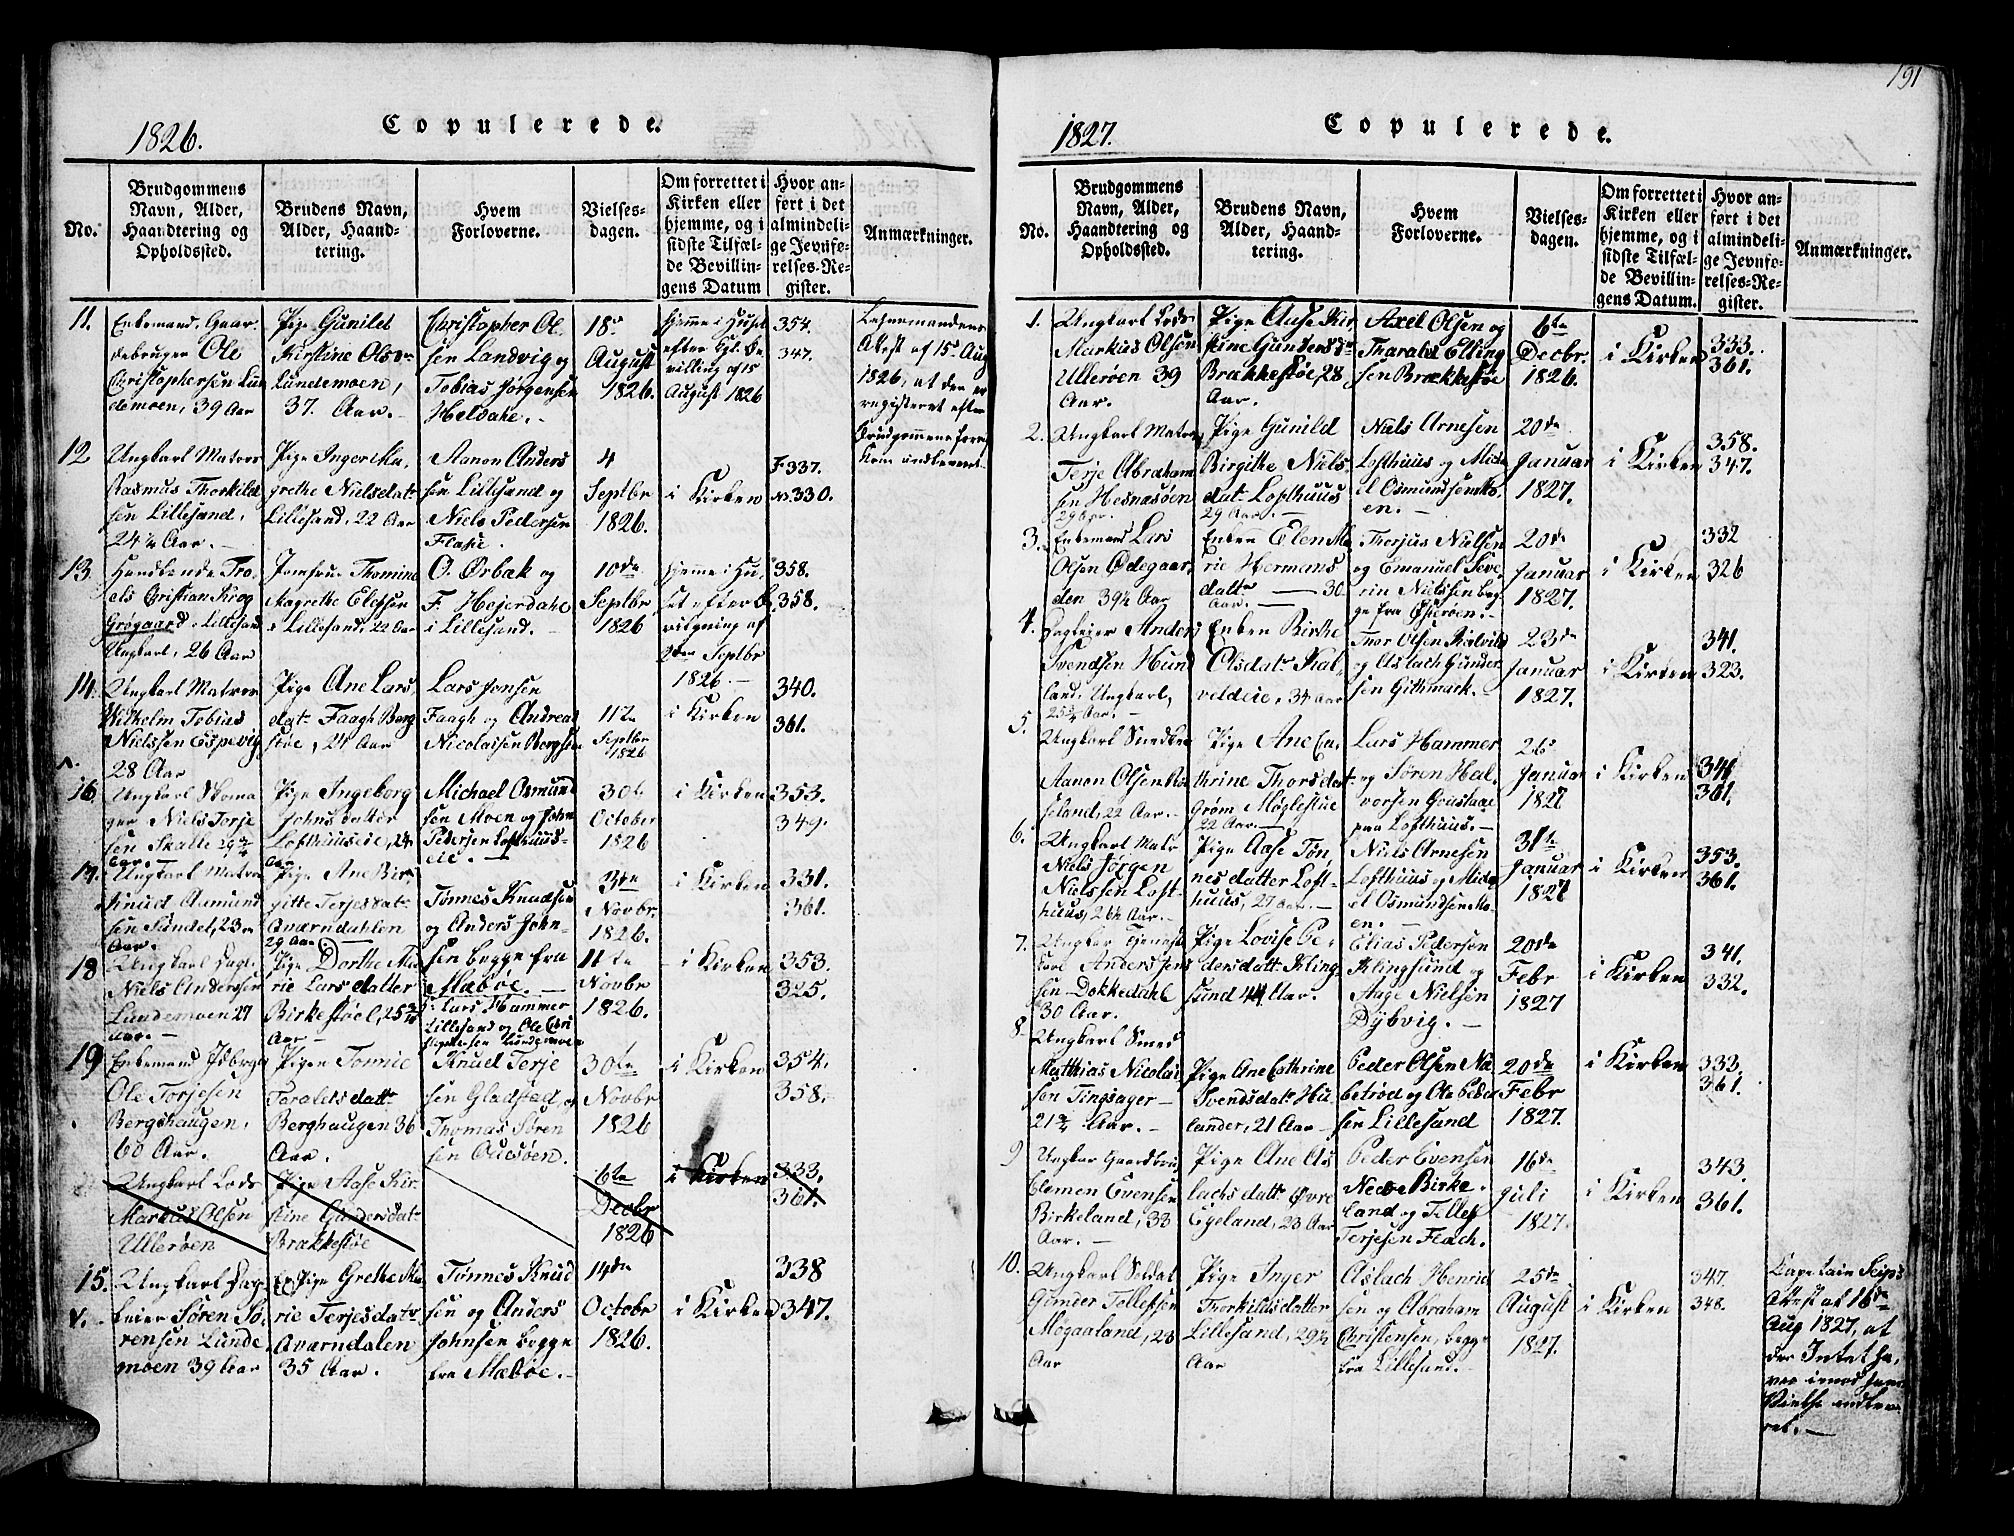 191
1826.
Copulerede.
No.
Brudgommens Navn, Alder, Haandtering og Opholdssted.
Brudens Navn, Alder, Haandtering.
Hvem Forloverne.
Vielsesdagen.
Om forrettet i Kirken eller hjemme, og i sidste Tilfælde Bevillingens Datum
Hvor anført i det almindelige Jevnførelses-Register.
Anmærkninger.
11.
Enkemand, Gaar-
debruger Ole
Christophersen Lun
demoen, 39 Aar
Pige Gunild
Kirstine Olsdr
Lundemoen,
37. Aar.-
Christopher Ol
sen Landvig og
Tobias Jørgensen
Heldahl.-
18de
August
1826.
hjemme i Huset
efter Kgl. Be
villing af 15
August 1826
354.
347.
Lehnsmandens
Attest af 15de Aug
1826, at den er
registeret efter
12
Ungkarl Matros
Rasmus Thorkild
sen Lillesand,
24¼ Aar.-
Pige Inger Ma,
grethe Nielsdatr
Lillesand, 22 Aar
Aanon Anders
sen Lillesand og
Niels Pedersen
4
Septbr
1826.
i Kirken
F 337.
330.
13
Tro,
els Christian Krog
Grøgaard i Lillesand
Ungkarl, 26 Aar
Jomfrue Thomine
Magrethe
i Lillesand, 22 Aar
O. Ørbak og
F. Højerdahl
i Lillesand.-
10de
Septbr
1826
hjemme i Hu,
set efter B
vilgning af
2den Septbr
1826.-
358.
358.
14.
Ungkarl Matros
Wilhelm Tobias
Nielssen Espevig
28 Aar
Pige Ane Lars,
datr Faagh Berg
støe, 24 Aar
Lars Jonsen
Faagh og Andreas
Nicolaisen Bergstøe
11te
Septbr
1826
i Kirken
340.
361.
16.
Ungkarl Skoma
ger Niels Terje
sen Skalle 29¾
Aar.
Pige Ingeborg
Johnsdatter
Lofthuuseie, 24
Aar
Michael Osmund
sen Moen og John
Pedersen Lofthuus-
eie.-
30te
October
1826
i Kirken
353.
349.
17.
Ungkarl Matros
Knud Aamund
sen Sundet, 23
Aar.-
Pige Ane Bir,
gitte Terjesdatr
Aværndahlen
29 Aar
Tønnes Knudsen
og Anders John-
sen begge fra
Mæbøe.-
3die
Novbr.
1826.
i Kirken
331.
361.
18
Ungkarl
Niels Andersen
Lundemoen 27
Aar.-
Pige Dorthe Ma
rie Larsdatter
Birkestøel, 25¾
Aar-
Lars Hammer
Lillesand og Ole Chri
stophersen Lundemoen
11te
Novbr
1826.
i Kirken
353.
325.
19
Enkemand
Ole Torjesen
Bergshaugen,
60 Aar.
Pigen Tonnie
Taraldsdatt
Berghaugen 36
Aar.
Knud Terje
sen Gladsted, og
Thomas Søren
sen Ouesøen.
30te
Novbr
1826
i Kirken
354.
358.
Ungkarl Lods
Markus Olsen
Ullerøen
Pige Aase Kir
stine Gundersdatr
Brækkestøe
6te
Decbr
1826
i Kirken
333.
361.
15.
Ungkarl Dag-
leier Søren Sø,
rensen Lunde
moen 39 Aar
Pige Grethe Ma
rie Terjesdatr
Aværndalen
35 Aar.
Tønnes Knud
sen og Anders
Johnsen begge
fra Mæbøe.-
14de
Octobr
1826.
i Kirken
338
347.
1827.
Copulerede.
No.
Brudgommens Navn, Alder, Haandtering og Opholdssted.
Brudens Navn, Alder, Haandtering.
Hvem Forloverne.
Vielsesdagen.
Om forrettet i Kirken eller hjemme, og i sidste Tilfælde Bevillingens Datum.
Hvor anført i det almindelige Jevnførelses-Register.
Anmærkninger.
1.
Ungkarl Lods
Markus Olsen
Ullerøen 39
Aar.
Pige Aase Kir
stine Gundersdr
Brækkestøe, 28
Aar.
Axel Olsen og
Tharald Elling
sen Brækkestøe
6te
Decbr.
1826.
i Kirken
333.
361.
2.
Ungkarl Matros
Terje Abraham
sen Hesnæsøen
29 Aar.
Pige Gunild
Birgithe Niels
datr Lofthuus
29 Aar.-
Niels Arnesen
Lofthuus og Mich
el Osmundsen Mo
en.-
20de
Januar
1827.
i Kirken
358.
347.
3.
Enkemand Lars
Olsen Ødegaar,
den 39½ Aar
Enken Elen Ma
rie Hermans
datter - 30
Aar.-
Therjus Nielsen
og Emanuel Seve
rin Nielssen beg
ge fra Østerøen.-
20de
Januar
1827.
i Kirken
332
326
4.
Dagleier Anders
Svendsen Hund
land, Ungkarl,
25¾ Aar.-
Enken Birthe
Olsdatr Kal,
veldeie, 34 Aar
Thor Olsen Kalvild
og Aslach Gunder
sen Githmark.-
23de
Januar
1827.
i Kirken
341.
323.
5.
Ungkarl Snedker
Aanon Olsen
22 Aar.-
Pige Ane Ca,
thrine Thorsdatr
Grøm Møglestue
22 Aar.-
Lars Hammer
og Søren Hal,
vorsen
paa Lofthuus.-
26de
Januar
1827
i Kirken
341
361.
6.
Ungkarl Matr
Niels Jørgen
Nielssen Loft-
huus, 26½ Aar.-
Pige Aase Tøn,
nesdatter Loft-
huus, 27 Aar.-
Niels Arnesen
Lofthuus og Mich
el Osmundsen Mo-
en.-
31te
Januar
1827
i Kirken
353.
361.
7.
Ungkar Tjenest
karl Anders
sen Dokkedahl
30 Aar.
Pige Lovise Pe,
dersdatt Kling-
sund 44 Aar.
Elias Pedersen
Klingsund og
Aage Nielsen
Dybvig.-
20de
Febr
1827
i Kirken
341.
332.
8.
Ungkarl Smed
Matthias Nicolai
sen Tingsager-
21¾ Aar.-
Pige Ane Cathrine
Svendsdatr Hu-
lander, 21 Aar-
Peder Olsen Na
betrød og Ole Peder
sen Lillesand
20de
Febr
1827.
i Kirken
333.
361.
9
Ungkar Gaardbru
Clemen Evensen
Birkeland, 33
Aar.-
Pige Ane As
lachsdatt Øvre
Egeland, 23 Aar
Peder Evensen
Nedre Birke-
land og Tellef
Terjesen Flach.
16de
Juli
1827.
i Kirken
343.
361.
10.
Ungkarl Soldat
Gunder Tellefsen
Møgaaland, 23
Aar
Pige Inger
Thorkildsdatter
Lillesand, 29½
Aar
Aslach Henrich
sen og Abraham
Christensen, begge
fra Lillesand.-
25de
August
1827.
i Kirken
347.
348.
Capetain Seips
Attest af 18de
Aug 1827, at
der Intet ha,
ves imod hans
Vielse indleve
ret.-